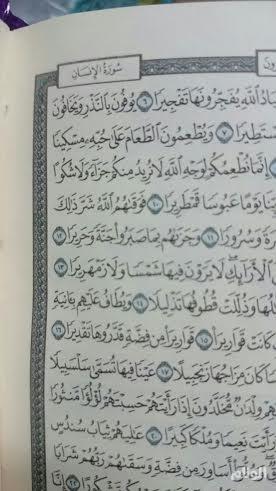 سُورَةُ الإِنسَانِ
عِبَادُ اللَّهِ يُفَجِّرُونَهَا تَفْجِيرًا ٦ يُوفُونَ بِالنَّذْرِ وَيَخَافُونَ
مُسْتَطِيرًا ٧ وَيُطْعِمُونَ الطَّعَامَ عَلَىٰ حُبِّهِ مِسْكِينًا
إِنَّمَا نُطْعِمُكُمْ لِوَجْهِ اللَّهِ لَا نُرِيدُ مِنكُمْ جَزَاءً وَلَا شُكُورًا
يَوْمًا عَبُوسًا قَمْطَرِيرًا ١٠ فَوَقَاهُمُ اللَّهُ شَرَّ ذَٰلِكَ
وَسُرُورًا ١١ وَجَزَاهُم بِمَا صَبَرُوا جَنَّةً وَحَرِيرًا ١٢
الْأَرَائِكِ لَا يَرَوْنَ فِيهَا شَمْسًا وَلَا زَمْهَرِيرًا ١٣
وَذُلِّلَتْ قُطُوفُهَا تَذْلِيلًا ١٤ وَيُطَافُ عَلَيْهِم بِآنِيَةٍ
كَانَتْ قَوَارِيرَا ١٥ قَوَارِيرَ مِن فِضَّةٍ قَدَّرُوهَا تَقْدِيرًا ١٦
كَانَ مِزَاجُهَا زَنجَبِيلًا ١٧ عَيْنًا فِيهَا تُسَمَّىٰ سَلْسَبِيلًا
وِلْدَانٌ مُّخَلَّدُونَ إِذَا رَأَيْتَهُمْ حَسِبْتَهُمْ لُؤْلُؤًا مَّنثُورًا
رَأَيْتَ نَعِيمًا وَمُلْكًا كَبِيرًا ٢٠ عَالِيَهُمْ ثِيَابُ سُندُسٍ
أَسَاوِرَ مِن فِضَّةٍ وَسَقَاهُمْ رَبُّهُمْ شَرَابًا